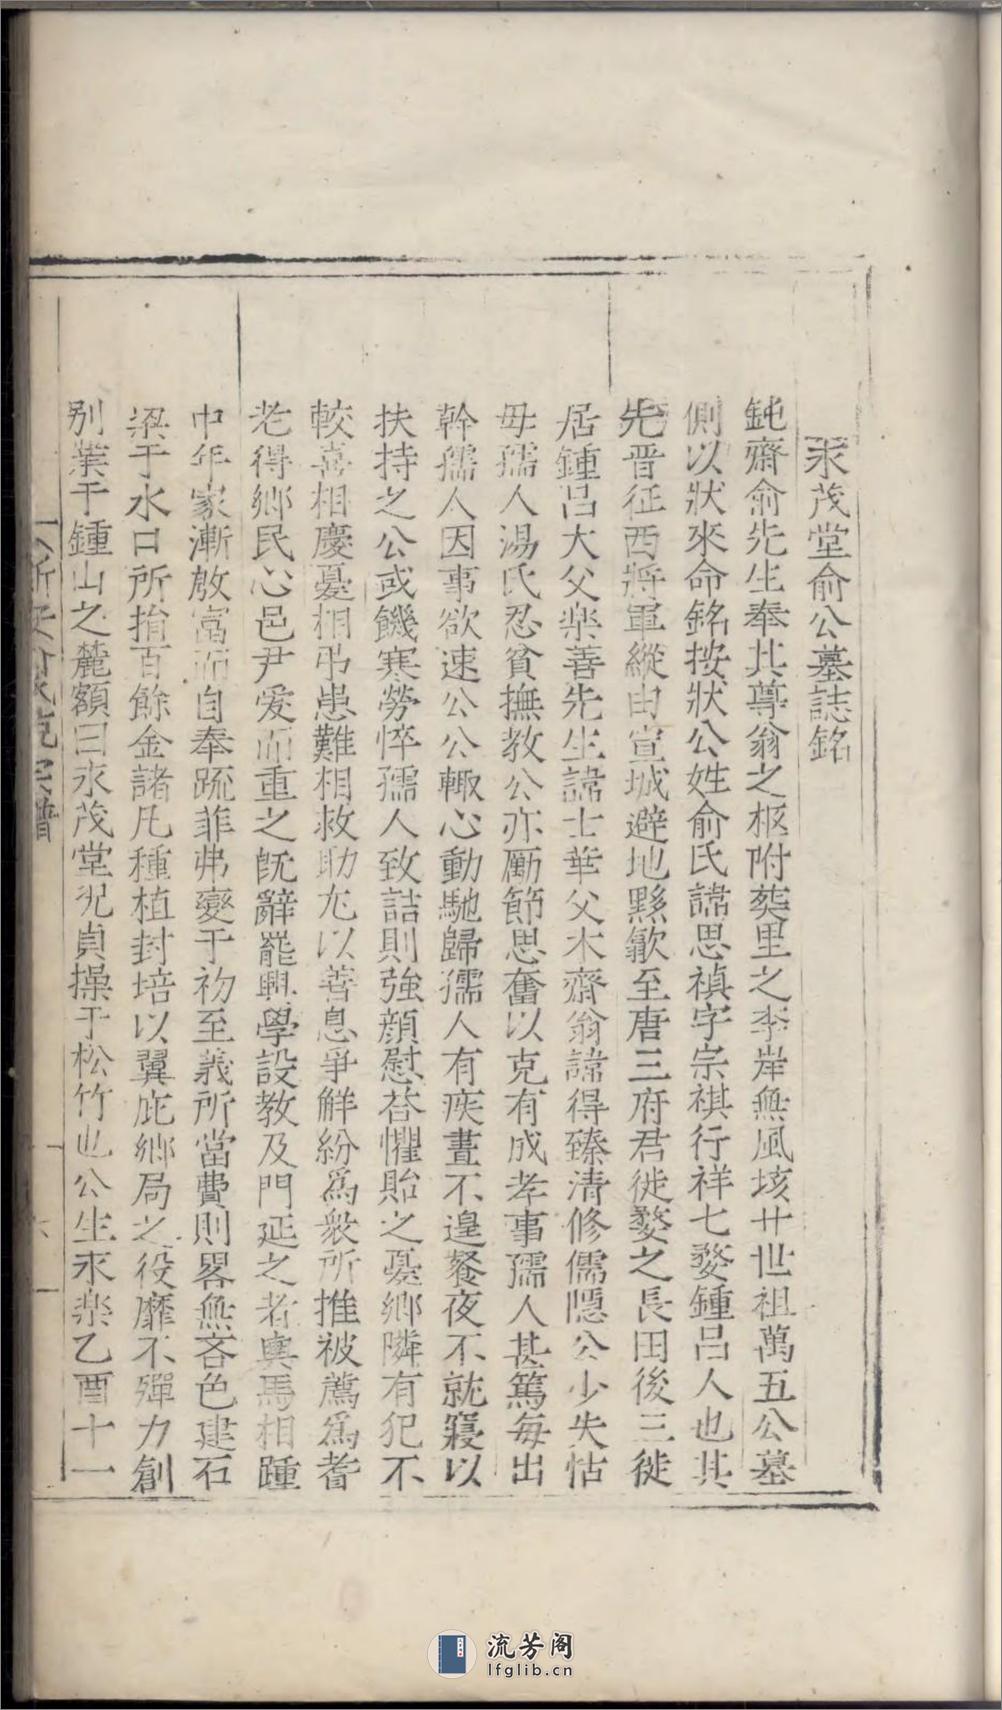 永茂堂俞公墓誌銘
鈍齋俞先生奉其尊翁之柩附葬里之李岸無風垓廿世祖萬五公墓
側以狀來命銘按狀公姓俞氏諱思禎字宗祺行祥七婺鍾呂人也其
先晋征西將軍縱由宣城避地黟歙至唐三府君徙婺之長田後三徙
居鍾呂大父楽善先生諱士華父木齋翁諱得臻清修儒隠公少失怙
母孺人湯氏忍貧撫教公亦勵節思奮以克有成孝事孺人甚篤每出
幹孺人因事欲速公公輙心動馳歸孺人有疾晝不遑餐夜不就寢以
扶持之公或饑寒勞悴孺人致詰則強顔慰荅懼貽之憂鄉隣有犯不
較喜相慶憂相弔患難相救助尤以善息爭觧紛爲衆所推被薦爲耆
老得鄉民心邑尹爱而重之既辭罷興學設教及門延之者輿馬相踵
中年家漸啟富而自奉疏菲弗變于初至義所當費則畧無吝色建石
梁于水口所捐百餘金諸凡種植封培以翼庇鄉局之役靡不殫力創
别業于鍾山之麓額曰永茂堂况貞操于松竹也公生永楽乙酉十一